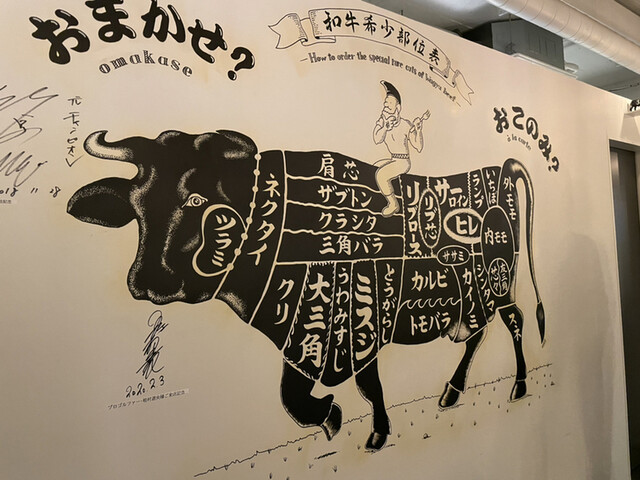 おまかせ?
omakase
和牛希少部位表
—How to order the special rare cuts of Wagyu beef—
おこのみ?
à la carte
2018 11 28
ツラミ
ネクタイ
肩芯
ザブトン
クラシタ
三角バラ
リブロース
リブ芯
サーロイン
ヒレ
ササミ
ランプ
いちぼ
外モモ
内モモ
クリ
大三角
うわみすじ
ミスジ
とうがらし
カルビ
トモバラ
カイノミ
シンタマ
スネ
2020.2.3